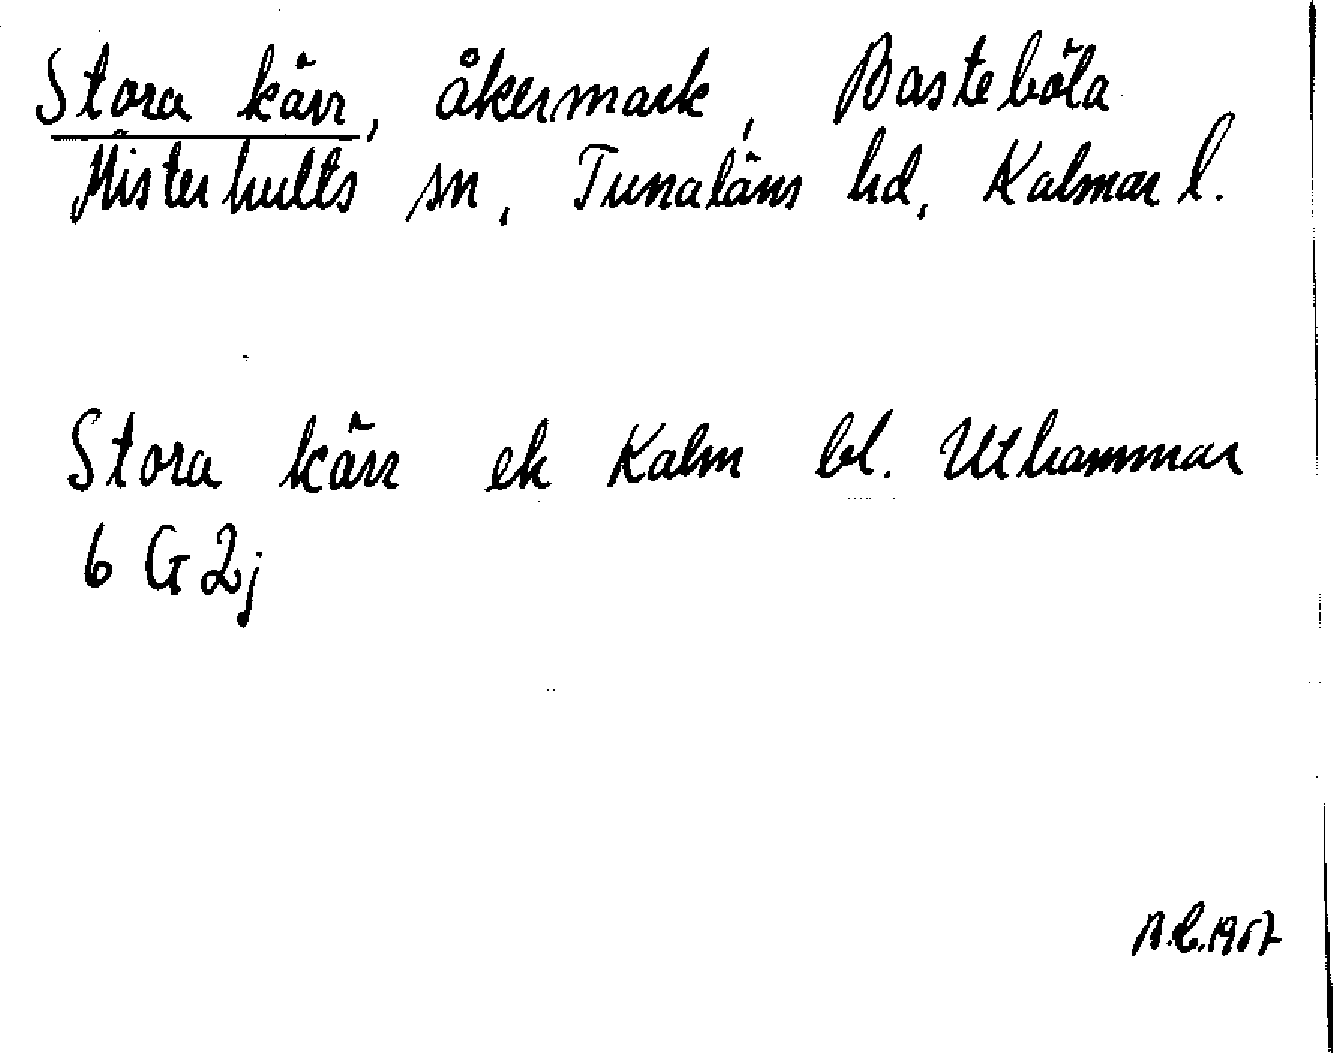 Stora kärr, åkermark, Basteböla
Misterhults sn, Tunaläns hd, Kalmar l.
Stora kärr ek Kalm bl. Uthammar
6 G 2j
1957